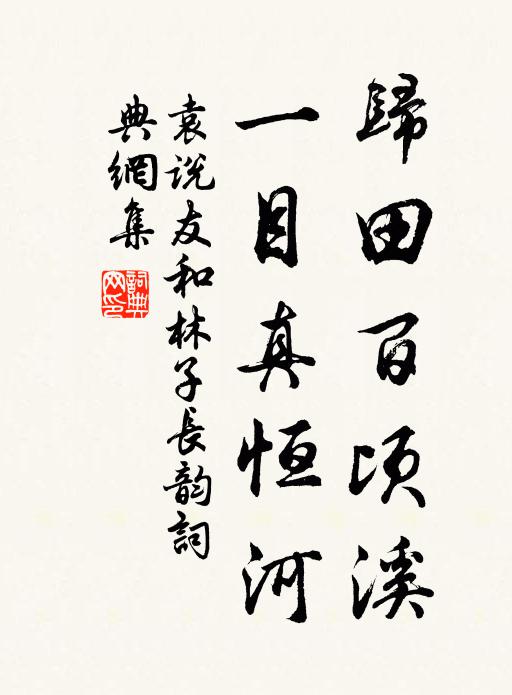 歸田百頃溪
一目真恒河
袁説友和林子長韵詞
典網集
詞典
网印